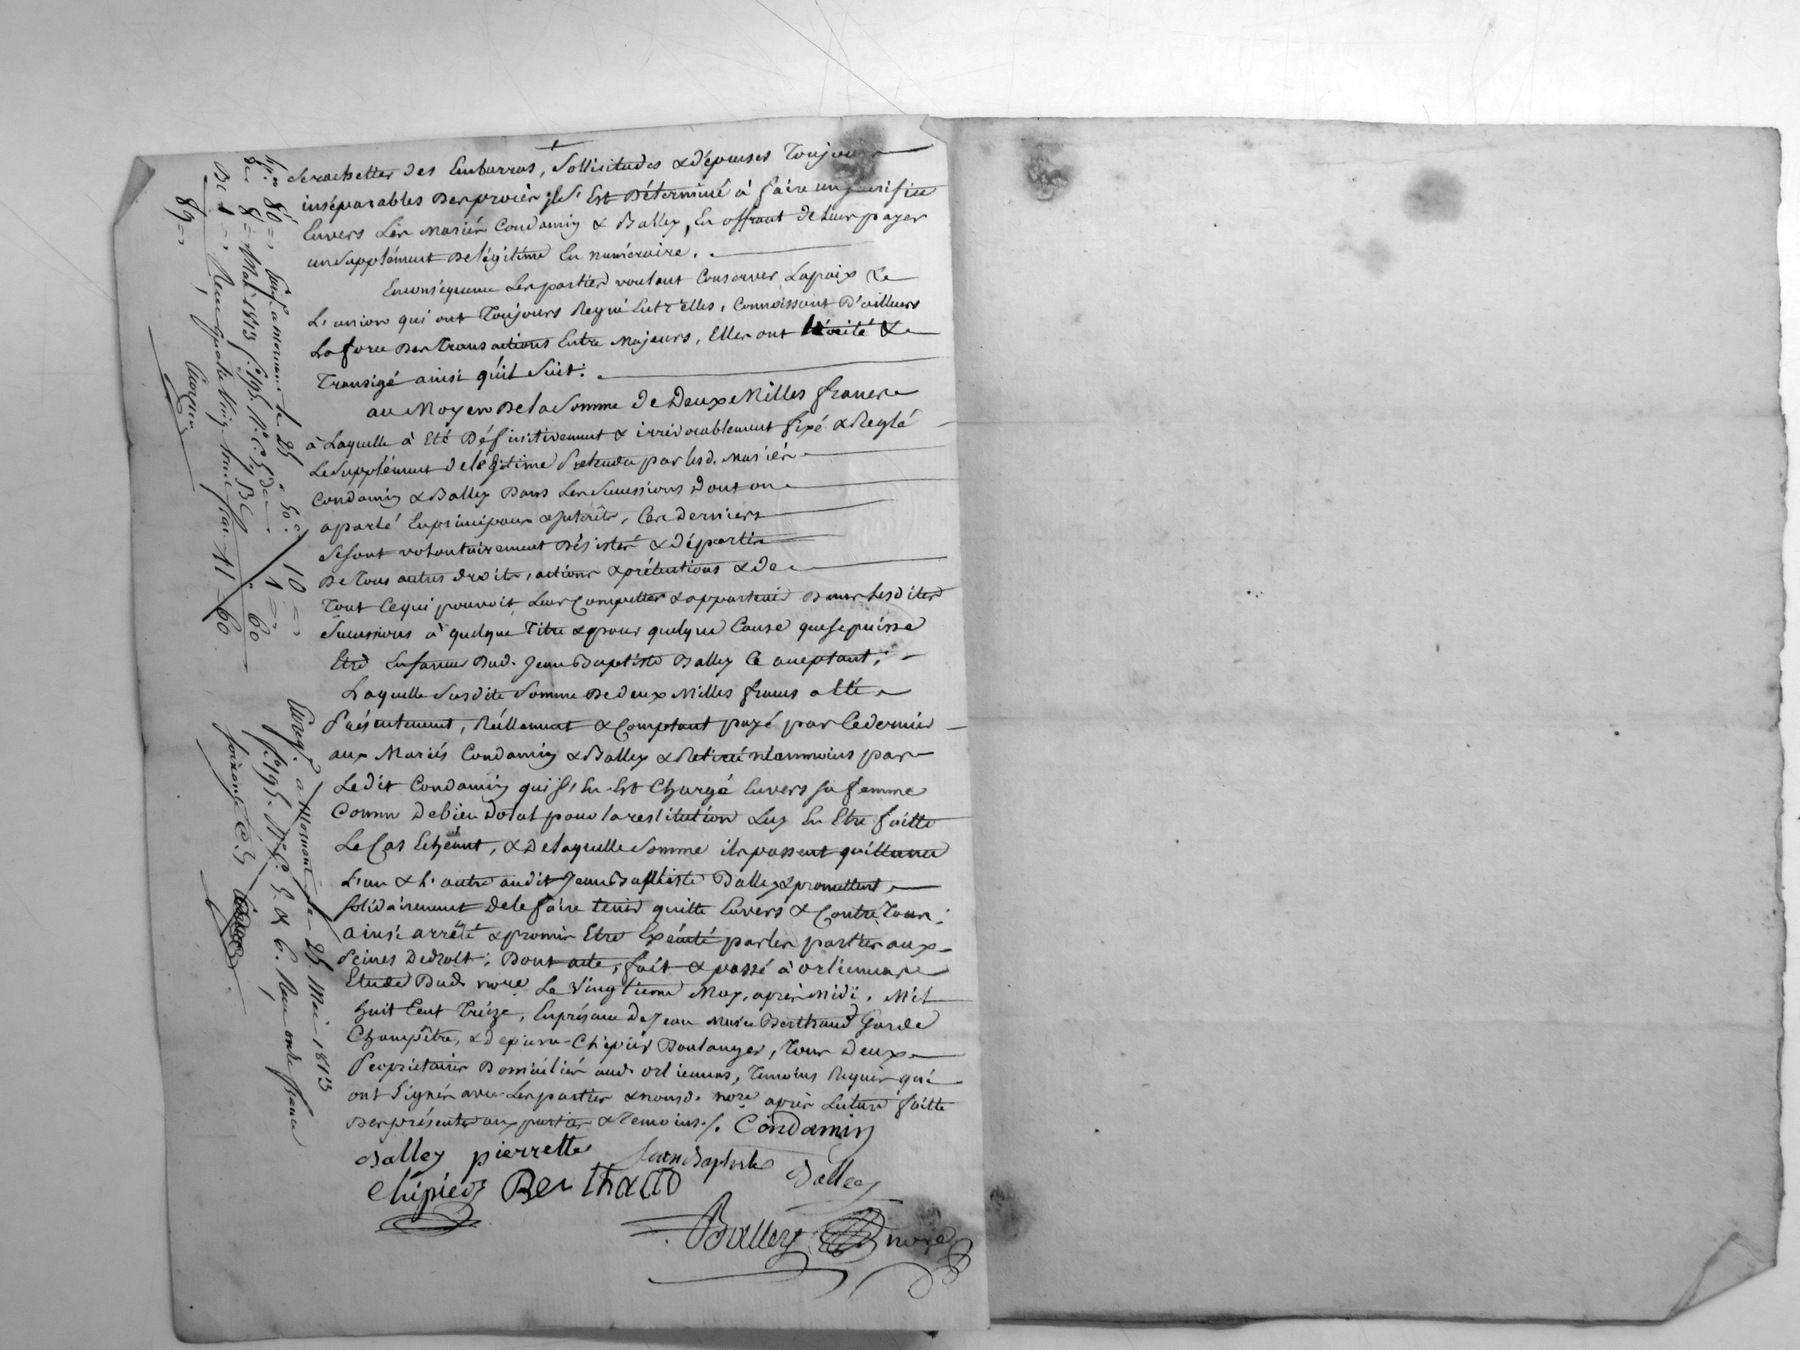 Se rachetter des Embarras, Sollicitudes & dépenses Toujours
inséparables Des procèr, ils'Est Déterminé à faire un sacrifice
Envers Lér Mariér Condamin & Balley, En offrant de Leur payer
un Supplément De légitime En numéraire.
Enconséquence Les partier voulant Conserver Lapaix &
L'union qui ont Toujours Regné Entr'elles, Connoissant D'ailleurs
La force Des Transactions Entre Majeurs, Elles ont traité &
Transigé ainsi qu'il Suit:
au Moyen De la Somme de Deux Milles francs
à Laquelle à Eté Définitivement & irrévocablement fixé & Reglé
Le Supplément de légitime prétendu par lesd. Mariér
Condamin & Balley Dans Les Successions dont on
a parlé En principaux & Intérêts, Ces Derniers
Se sont volontairement Désister & départir
De Tous autres droits, actions & prétentions & de
Tout Cequi pouvoit Leur Compétter & appartenir Dans Lesdites
Successions à quelque Titre & pour quelque Cause que se puisse
Etre En faveur Dud. Jean Baptiste Balley Ce aceptant;
Laquelle Susdite Somme De deux Milles francs a Eté
Présentement, Réellement & Comptant payé par Cedernier
aux Mariés Condamin & Balley & Retiré néanmoins par
Ledit Condamin qui S'En Est Chargé Envers Sa femme
Comme De bien dotal pour la restitution Luy En Etre faitte
Le Cas Echéant, & De laquelle Somme ils passent quittance
L'un & L'autre audit Jean Baptiste Balley & promettent
Solidairement De le faire tenir quitte Envers & Contre Tous;
ainsi arrêté & promis Etre Exécuté par les partier aux
Peines De droit; Dont acte, fait & passé à orliennas
Etude Dud. nore. Le Vingtieme May, après Midi, Mil
huit Cent Treize, En présence De Jean Marie Berthaud Garde
Champêtre, & de pierre Chipier Boulanger, Tous Deux
Propriétaires Domiciliér aud. orliennas, Temoins Requis qui
ont Signér avec Les partier & nousd. nore après Lecture faitte
Des présentes aux partier & Temoins./. Condamin
Balley pierrette Jean Baptiste Balley
Chipier Berthaud
Balley nore
Enregé. à Mornant le 25 Mai 1813
fo. 195. Ro. C. 5. & 6. Reçu onze francs
soixante C.